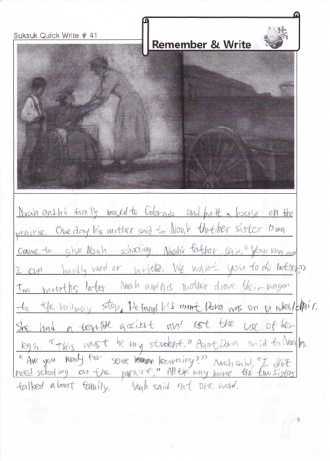 Suksuk Quick Write # 41
Remember & Write
Noah and his family moved to Colorado and built a house on the
prairie. One day his mother said to Noah that her sister Dora
came to give Noah schooling Noah's father said, "Your mom and
I can hardly read or write. We want you to do better."
Two months later Noah and his mother drove their wagon
to the railway stop. He found his aunt Dora was on a wheelchair.
She had a terrible accident and lost the use of her
legs. "This must be my student." Aunt Dora said to Noah.
"Are you ready for some learning?" Noah said, "I don't
need schooling on the prairie." All the way home the two sisters
talked about family. Noah said not one word.